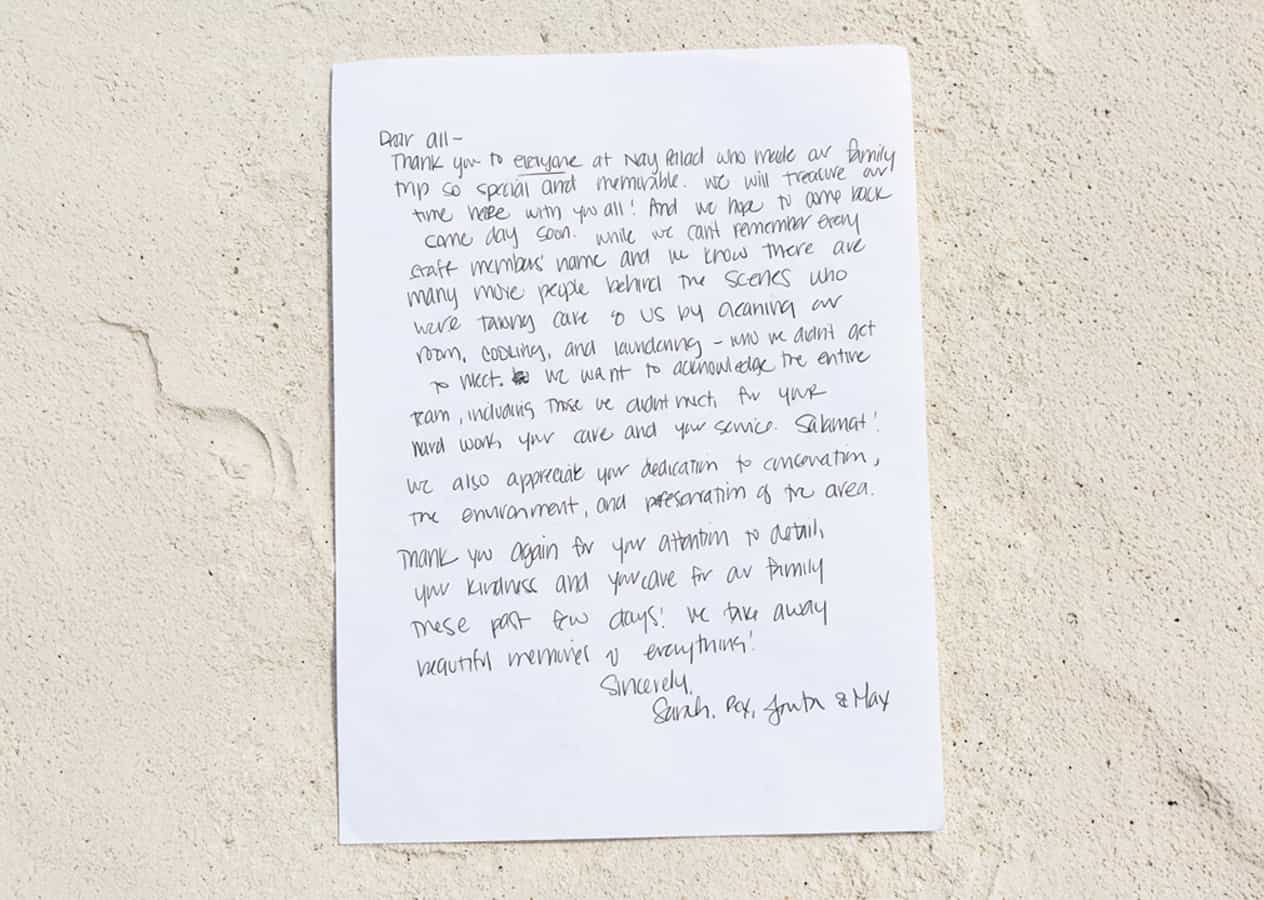 Dear all-
Thank you to everyone at Nay Pallad who made our family
trip so special and memorable. We will treasure our
time here with you all! And we hope to come back
some day soon. While we can't remember every
staff members' name and we know there are
many more people behind the scenes who
were taking care of us by cleaning our
room, cooking, and laundering - who we didn't get
to meet. We want to acknowledge the entire
team, including those we didn't meet, for your
hard work, your care and your service. Salamat!
We also appreciate your dedication to conservation,
the environment, and preservation of the area.
Thank you again for your attention to detail,
your kindness and your care for our family
these past few days! We take away
beautiful memories of everything!
Sincerely,
Sarah, & Max